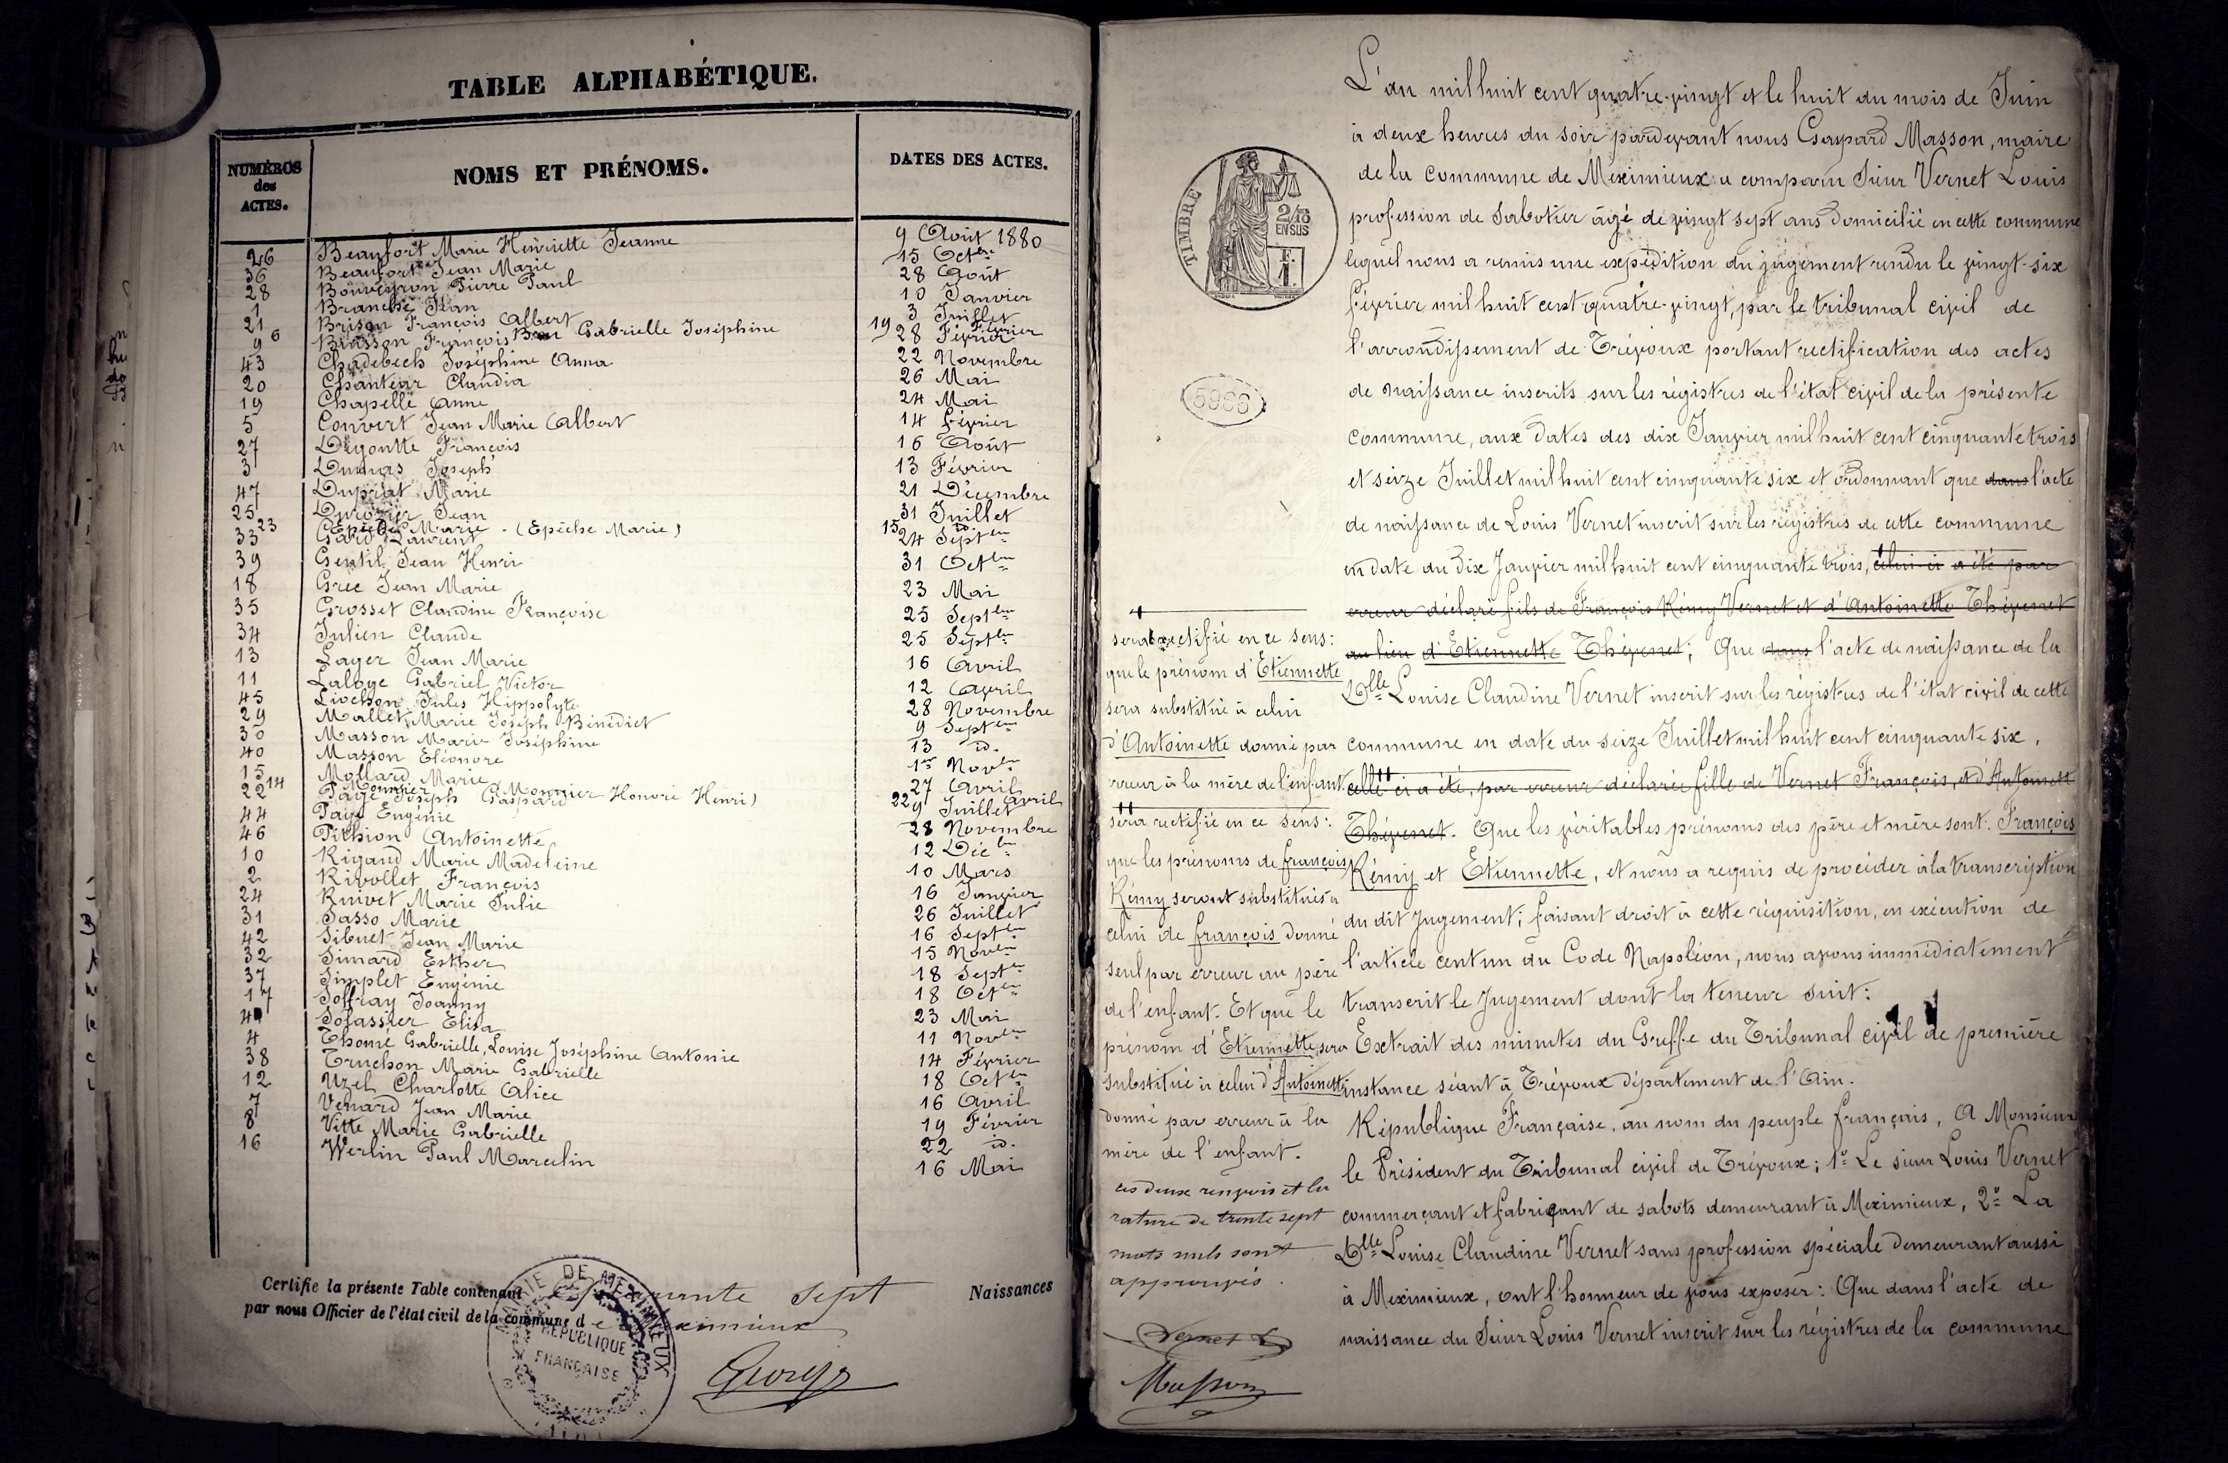 TABLE ALPHABÉTIQUE.
NUMÉROS des ACTES.
NOMS ET PRÉNOMS.
DATES DES ACTES.
26 Beaufort Marie Henriette Jeanne 9 Août 1880
36 Beaufort Jean Marie 15 Octbre
28 Bouveyron Pierre Paul 28 Août
1 Branche Jean 10 Janvier
21 Brison François Albert 3 Juillet
6 Gabrielle Joséphine 19 Février
9 Buisson François 28 Février
43 Chadebech Joséphine Anna 22 Novembre
20 Chanteur Claudia 26 Mai
19 Chapelle Anne 24 Mai
5 Convert Jean Marie Albert 14 février
27 Digoutte François 16 Août
3 Dumas Joseph 13 Février
47 Duprat Marie 21 Décembre
25 Durozier Jean 31 Juillet
23 Epiche Marie - (Epêche Marie) 15 do
33 Gard Laurent 24 Septbre
39 Gentil Jean Henri 31 Octbre
18 Grec Jean Marie 23 Mai
35 Grosset Claudine Françoise 25 Septbre
34 Julien Claude 25 Septbre
13 Layer Jean Marie 16 Avril
11 Laloge Gabriel Victor 12 Avril
45 Liochon Jules Hippolyte 28 Novembre
29 Mallet Marie Joseph Bénédict 9 Septbre
30 Masson Marie Joséphine 13 d°.
40 Masson Eléonore 1er Novbre
15 Mollard Marie 27 Avril
14 Monnier Gaspard Monnier Honoré Henri) 22 Avril
22 Page Joseph 9 Juillet
44 Page Eugénie 28 Novembre
46 Pithion Antoinette 12 Décbre
10 Rigaud Marie Madeleine 10 Mars
2 Rivollet François 16 Janvier
24 Ruivet Marie Julie 26 Juillet
31 Sasso Marie 16 Septbre
42 Sibuet Jean Marie 15 Novbre
32 Simard Esther 18 Septbre
37 Simplet Eugénie 18 Octbre
17 Soffray Joanny 23 Mai
41 Sofassier Elisa 11 Novbre
4 Thomé Gabrielle, Louise Joséphine Antonie 14 Février
38 Truchon Marie Gabrielle 18 Octbre
12 Uzel Charlotte Alice 16 Avril
7 Venard Jean Marie 19 Février
8 Vitte Marie Gabrielle 22 d°.
16 Werlin Paul Marcelin 16 Mai
Certifie la présente Table contenant quarante sept Naissances
par nous Officier de l'état civil de la commune de Meximieux
MAIRIE DE MEXIMIEUX
RÉPUBLIQUE
FRANÇAISE
TIMBRE
2/10
EN SUS
5966
L'an mil huit cent quatre-vingt et le huit du mois de Juin
à deux heures du soir pardevant nous Gaspard Masson, maire
de la commune de Meximieux a comparu Sieur Vernet Louis
profession de Sabotier âgé de vingt sept ans Domicilié en cette commune
lequel nous a remis une expédition du jugement rendu le vingt-six
février mil huit cent quatre-vingt, par le tribunal civil de
l'arrondissement de Trévoux portant rectification des actes
de naissance inscrits sur les régistres de l'état civil de la présente
commune, aux dates des dix Janvier mil huit cent cinquante trois
et seize Juillet mil huit cent cinquante six et ordonnant que dans l'acte
de naissance de Louis Vernet inscrit sur les régistres de cette commune
en date du Dix Janvier mil huit cent cinquante trois, celui-ci a été par
erreur déclaré fils de François Rémy Vernet et d'Antoinette Thévenet
au lieu d'Etiennette Thévenet; Que dans l'acte de naissance de la
Dlle Louise Claudine Vernet inscrit sur les régistres de l'état civil de cette
commune en date du seize Juillet mil huit cent cinquante six,
celle ci a été, par erreur déclarée fille de Vernet François, et d'Antoinette
Thévenet. Que les véritables prénoms des père et mère sont: François
Rémy et Etiennette, et nous a requis de procéder à la transcription
du dit Jugement; faisant droit à cette réquisition, en exécution de
l'article cent un du Code Napoléon, nous avons immédiatement
transcrit le Jugement dont la teneur suit:
Extrait des minutes du Greffe du Tribunal civil de première
instance séant à Trévoux Département de l'Ain.
République Française, au nom du peuple français, A Monsieur
le Président du Tribunal civil de Trévoux; 1° Le sieur Louis Vernet
commerçant et fabriquant de sabots demeurant à Meximieux, 2° La
Dlle Louise Claudine Vernet sans profession spéciale demeurant aussi
à Meximieux, ont l'honneur de vous exposer: Que dans l'acte de
naissance du Sieur Louis Vernet inscrit sur les régistres de la commune
sera rectifié en ce sens:
que le prénom d'Etiennette
sera substitué à celui
d'Antoinette donné par
erreur à la mère de l'enfant
sera rectifié en ce sens:
que les prénoms de françois
Rémy seront substitués à
celui de françois donné
seul par erreur au père
de l'enfant. Et que le
prénom d'Etiennette sera
substitué à celui d'Antoinette
donné par erreur à la
mère de l'enfant.
ces deux renvois et la
rature de trente sept
mots nuls sont
approuvés.
Vernet L
Masson